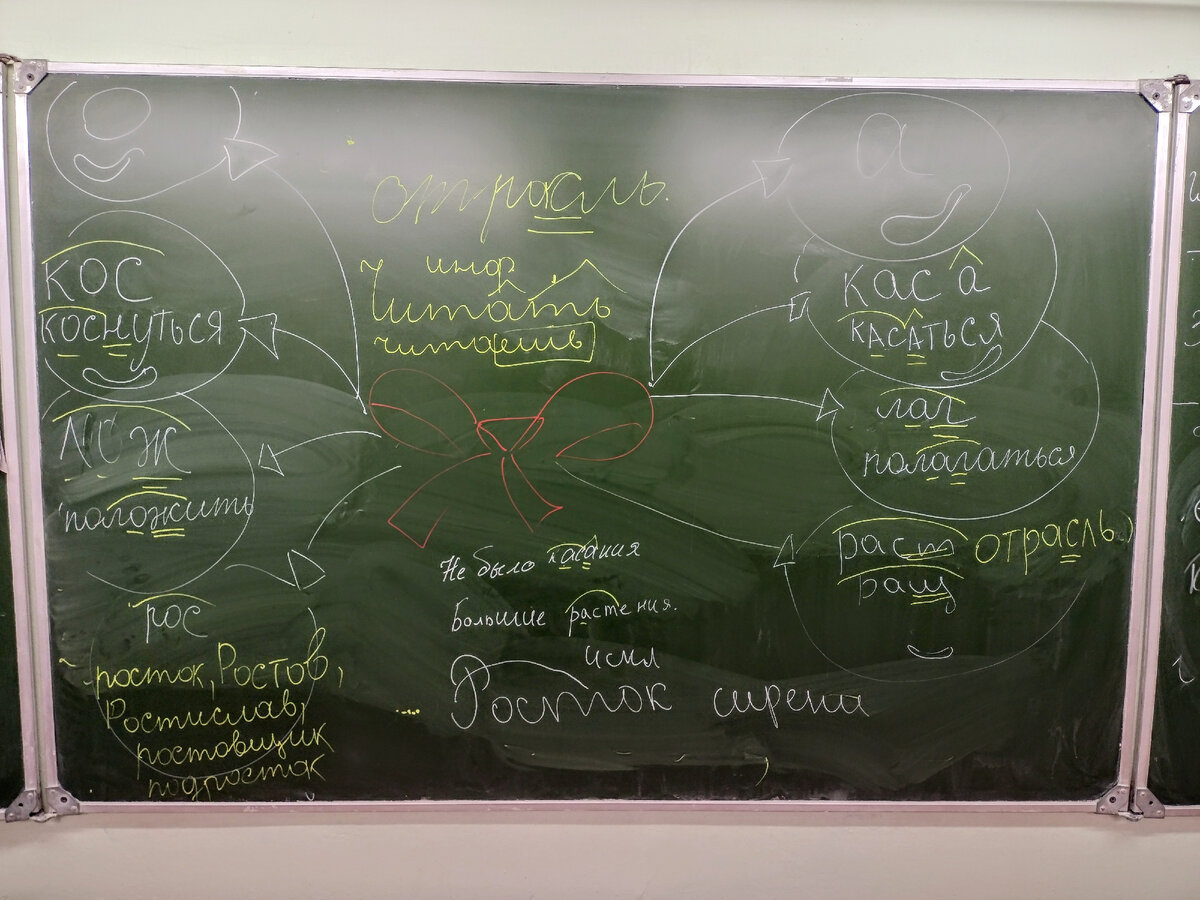 о
кос
коснуться
лож
положить
рос
росток, Ростов,
Ростислав,
ростовщик
подросток
отрасль.
инф
читать
читаешь
Не было касания
Большие растения.
искл
Росток сирени
а
каса
касаться
лаг
полагаться
раст отрасль)
ращ